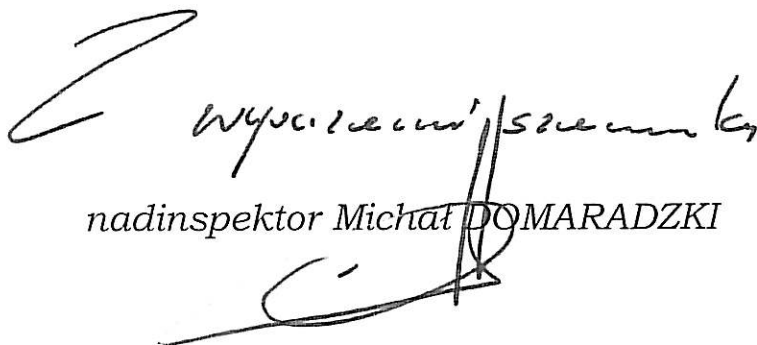 Z wyrazami szacunku
nadinspektor Michał DOMARADZKI